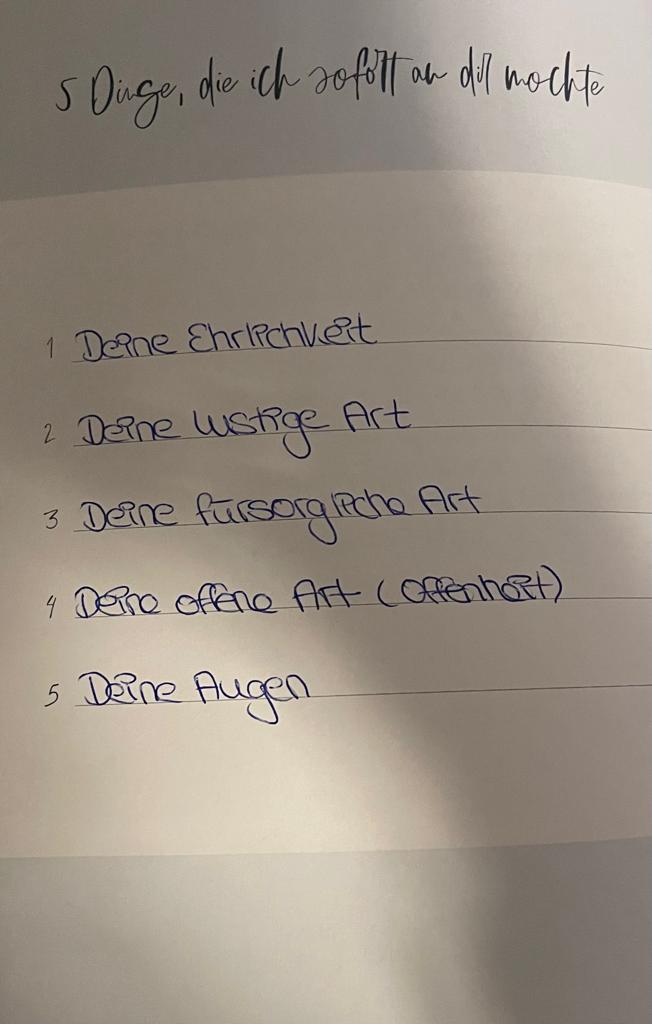 5 Dinge, die ich sofort an dir mochte
1 Deine Ehrlichkeit
2 Deine lustige Art
3 Deine fürsorgliche Art
4 Deine offene Art (Offenheit)
5 Deine Augen